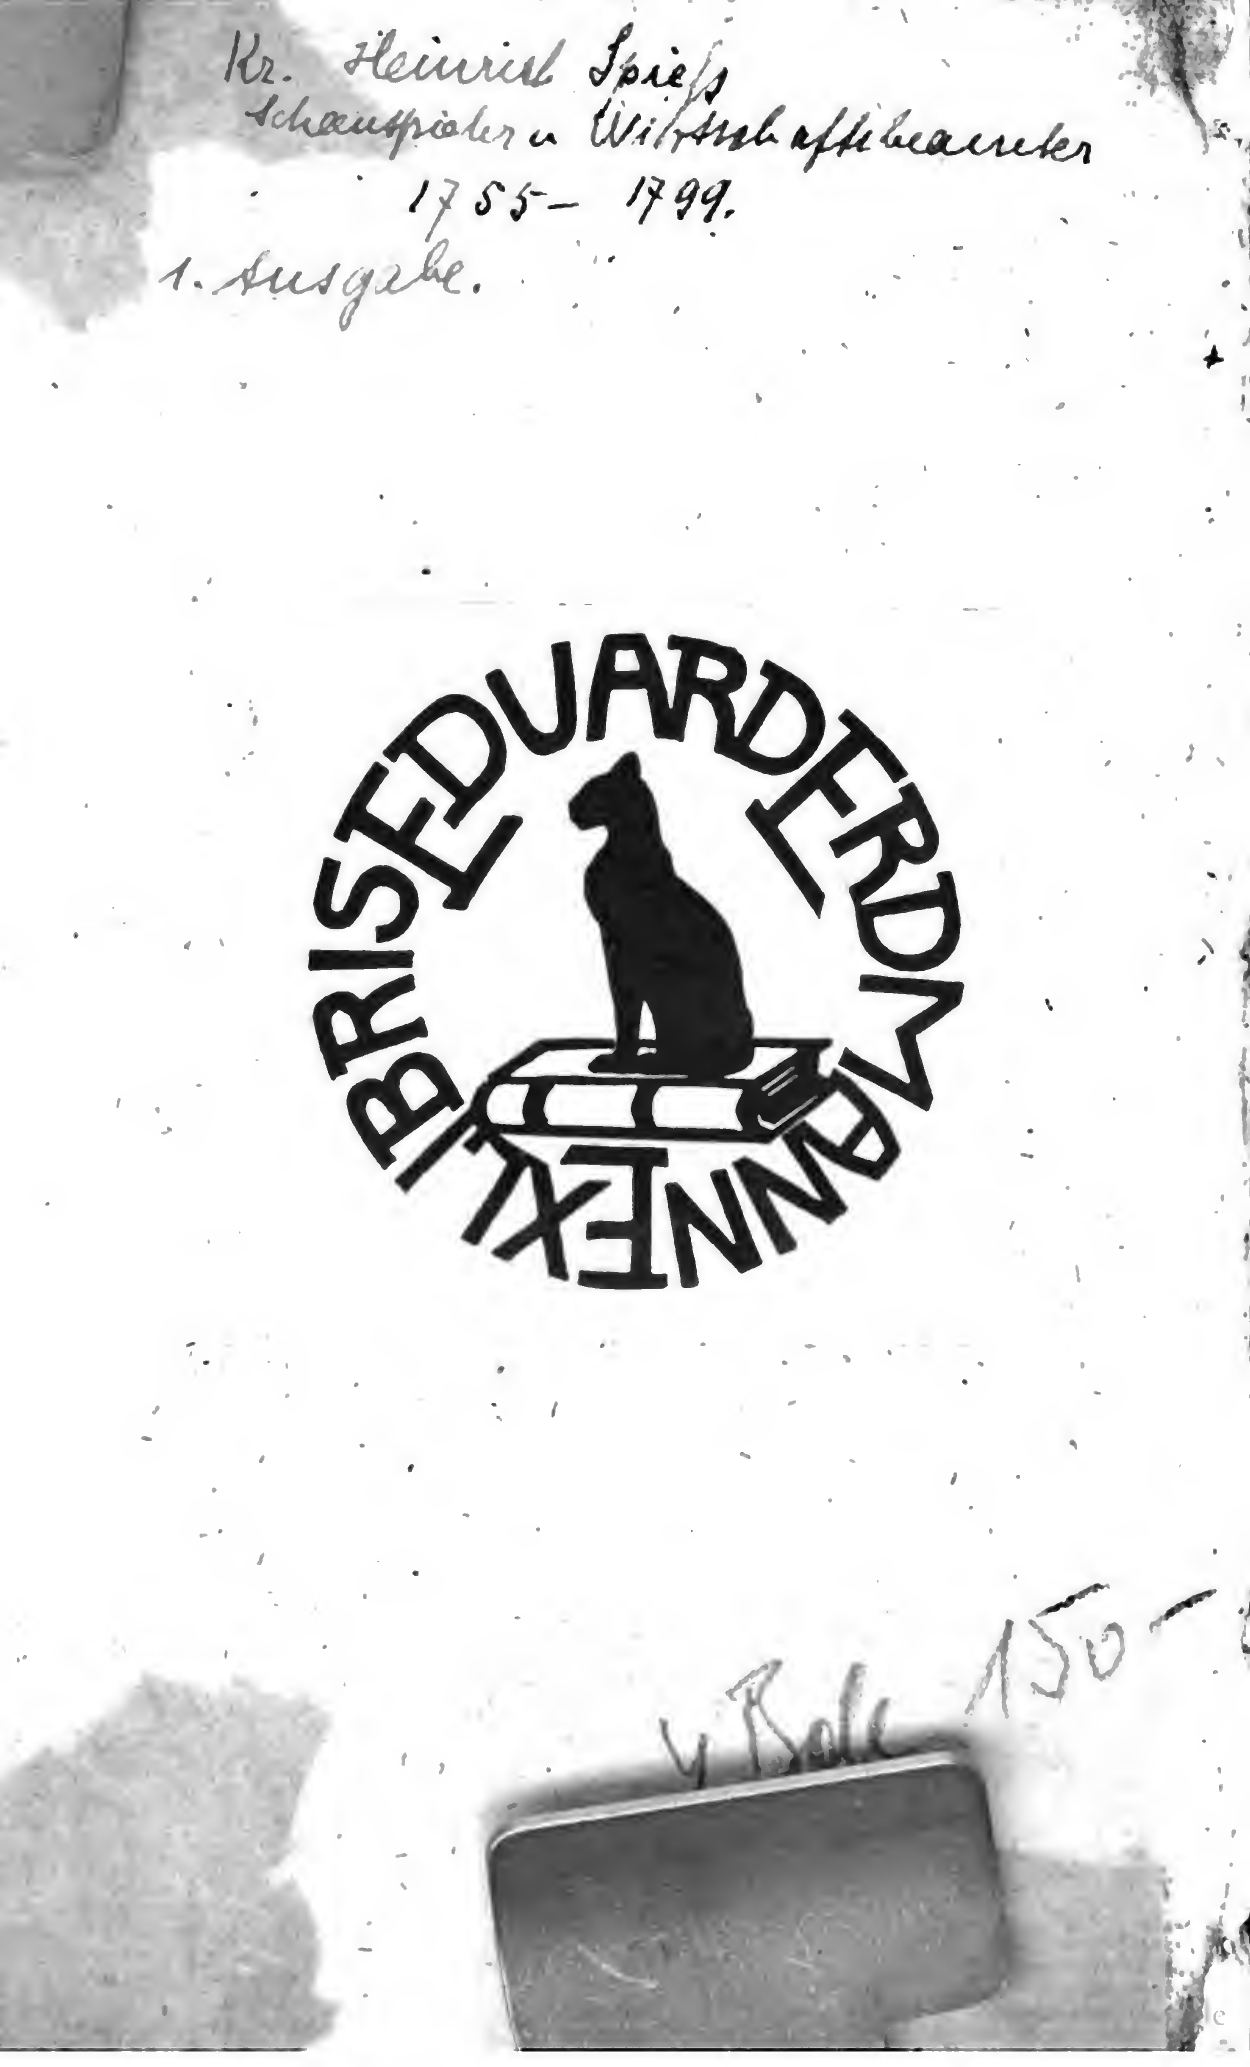 Kr. Heinrich Spieß
Schauspieler u Wirtschaftsbeamter
1755– 1799.
1. Ausgabe.
EXLIBRIS EDUARD ERDMANN
150–